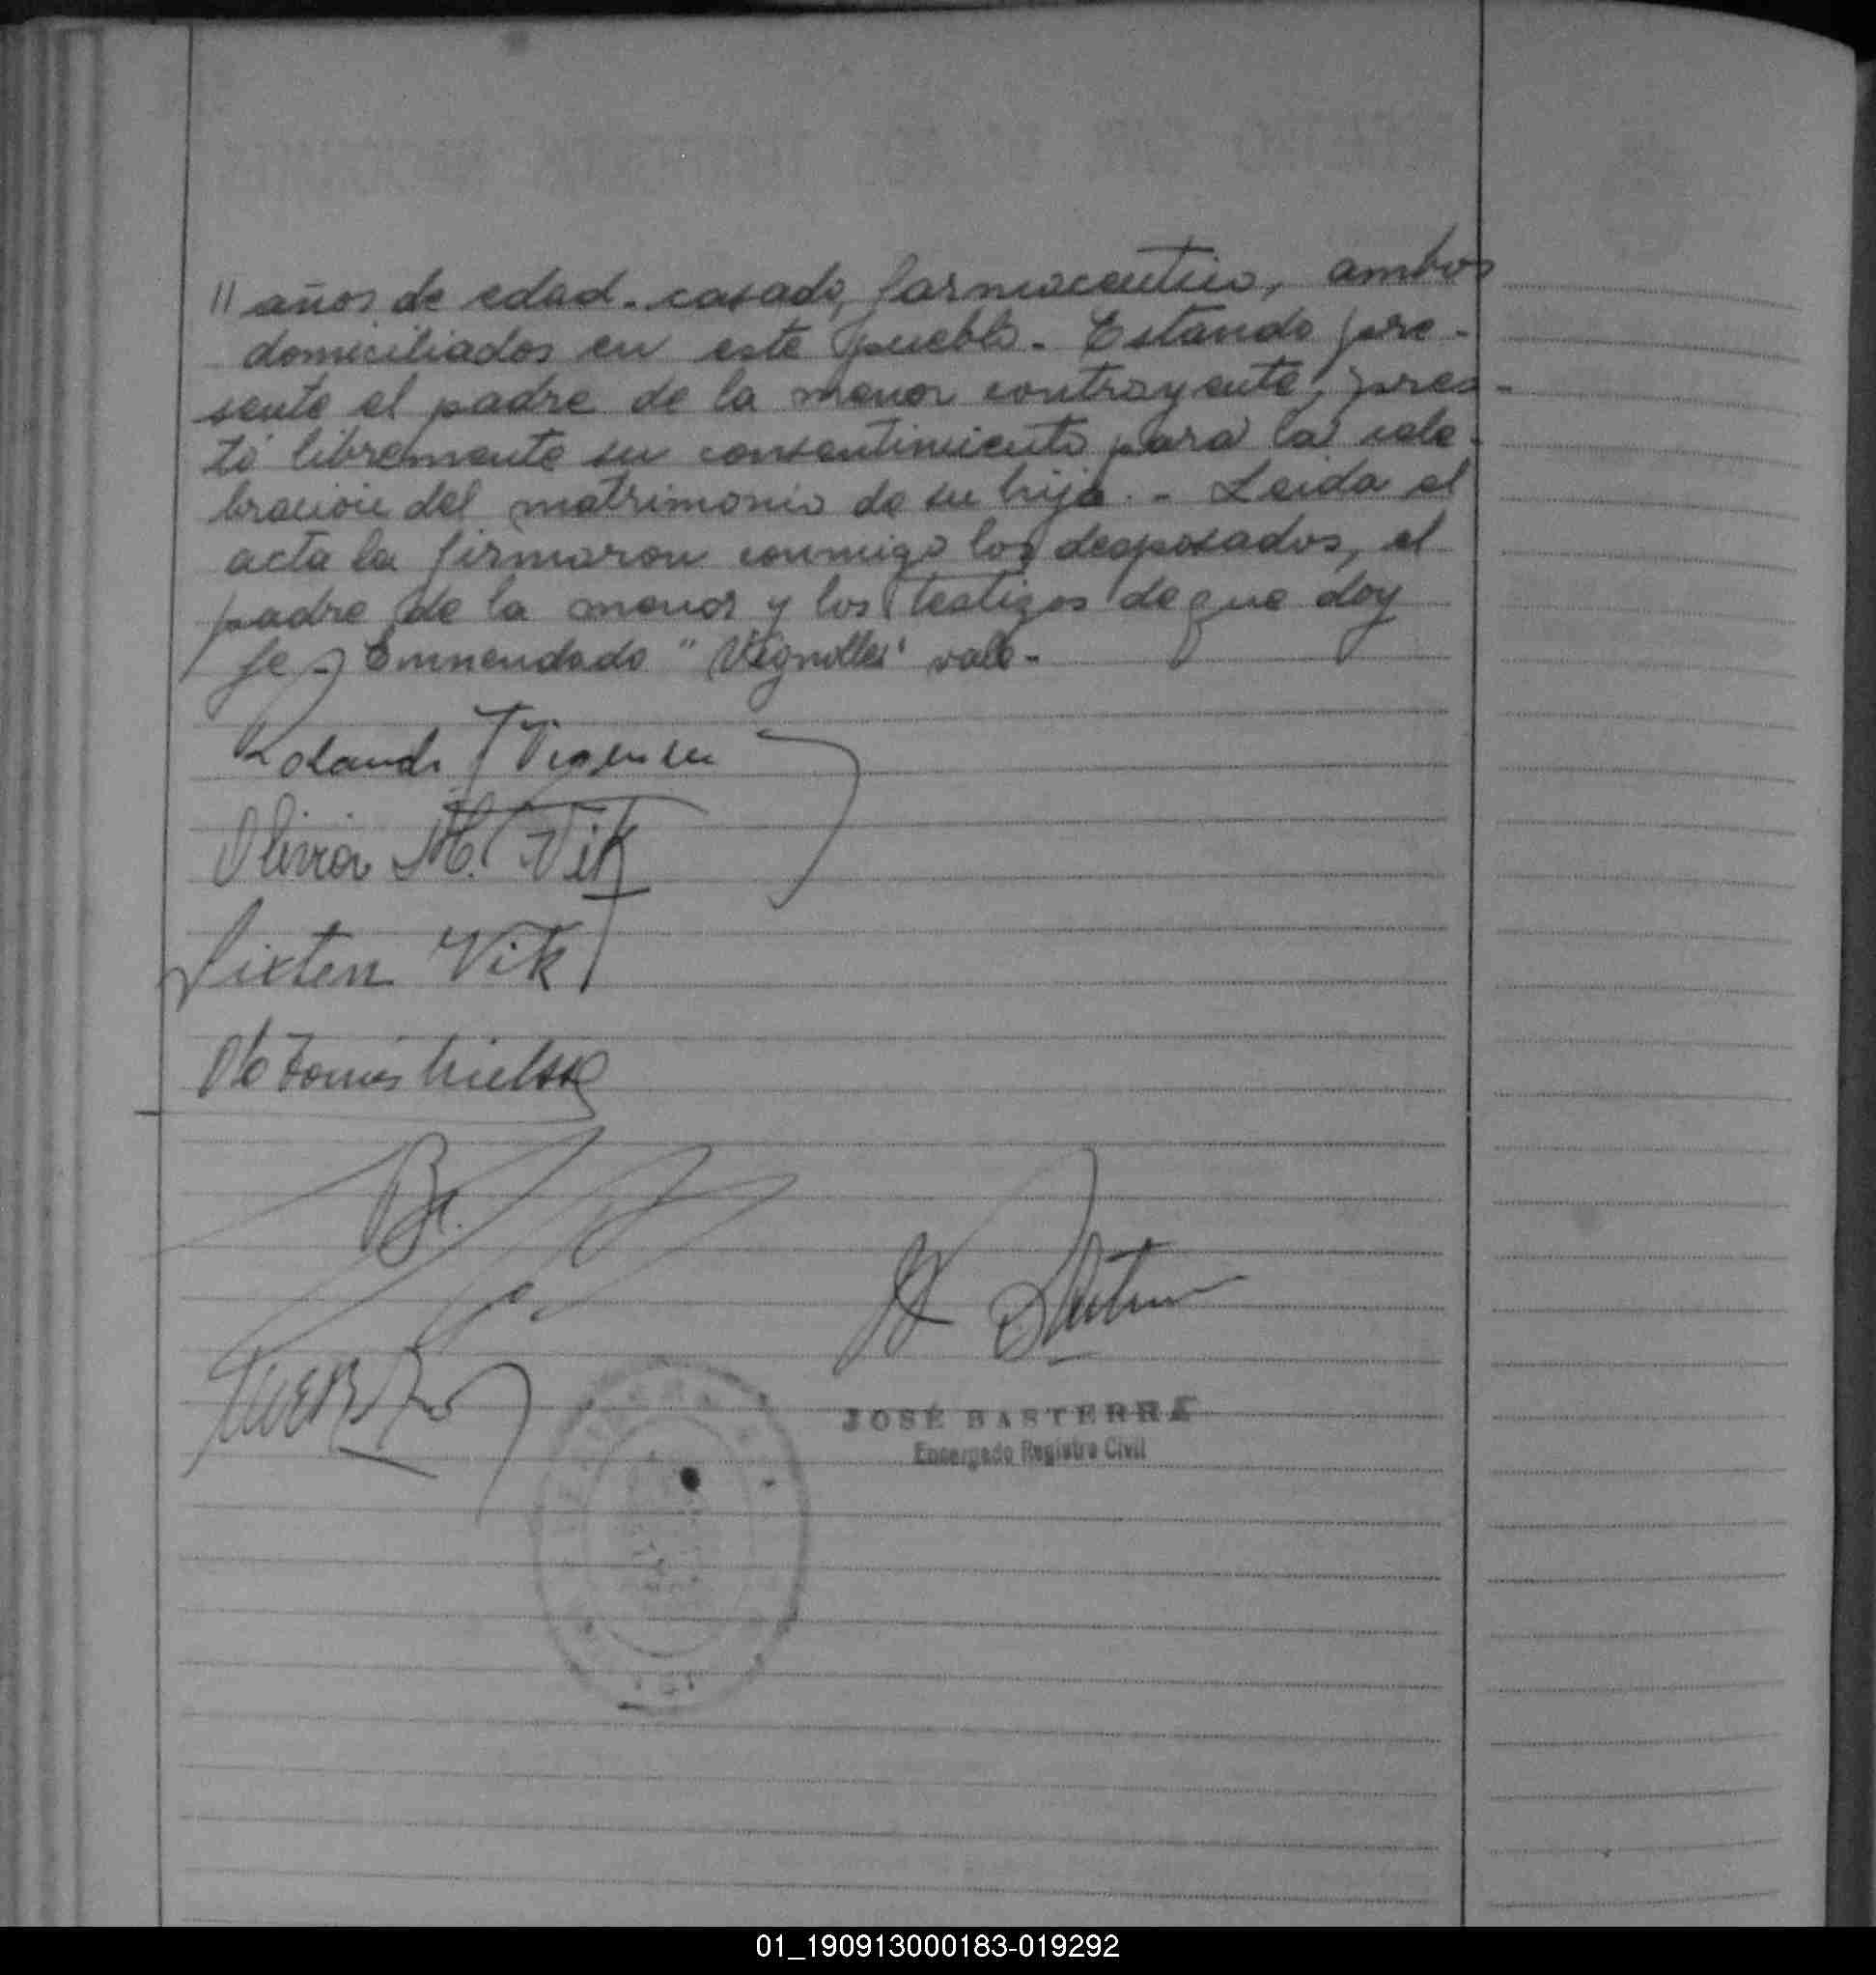 " años de edad. casado, farmaceutico, ambos
domiciliados en este pueblo. Estando pre-
sente el padre de la menor contrayente, pres-
tó libremente su consentimiento para la cele-
bración del matrimonio de su hija. - Leida el
acta la firmaron conmigo los desposados, el
padre de la menor y los testigos de que doy
fe - Enmendado "Vignolles" vale -
Rolando
Olivia M. Vik
Sixten Vik
JOSÉ BASTERRA
Encargado Registro Civil
01_190913000183-019292